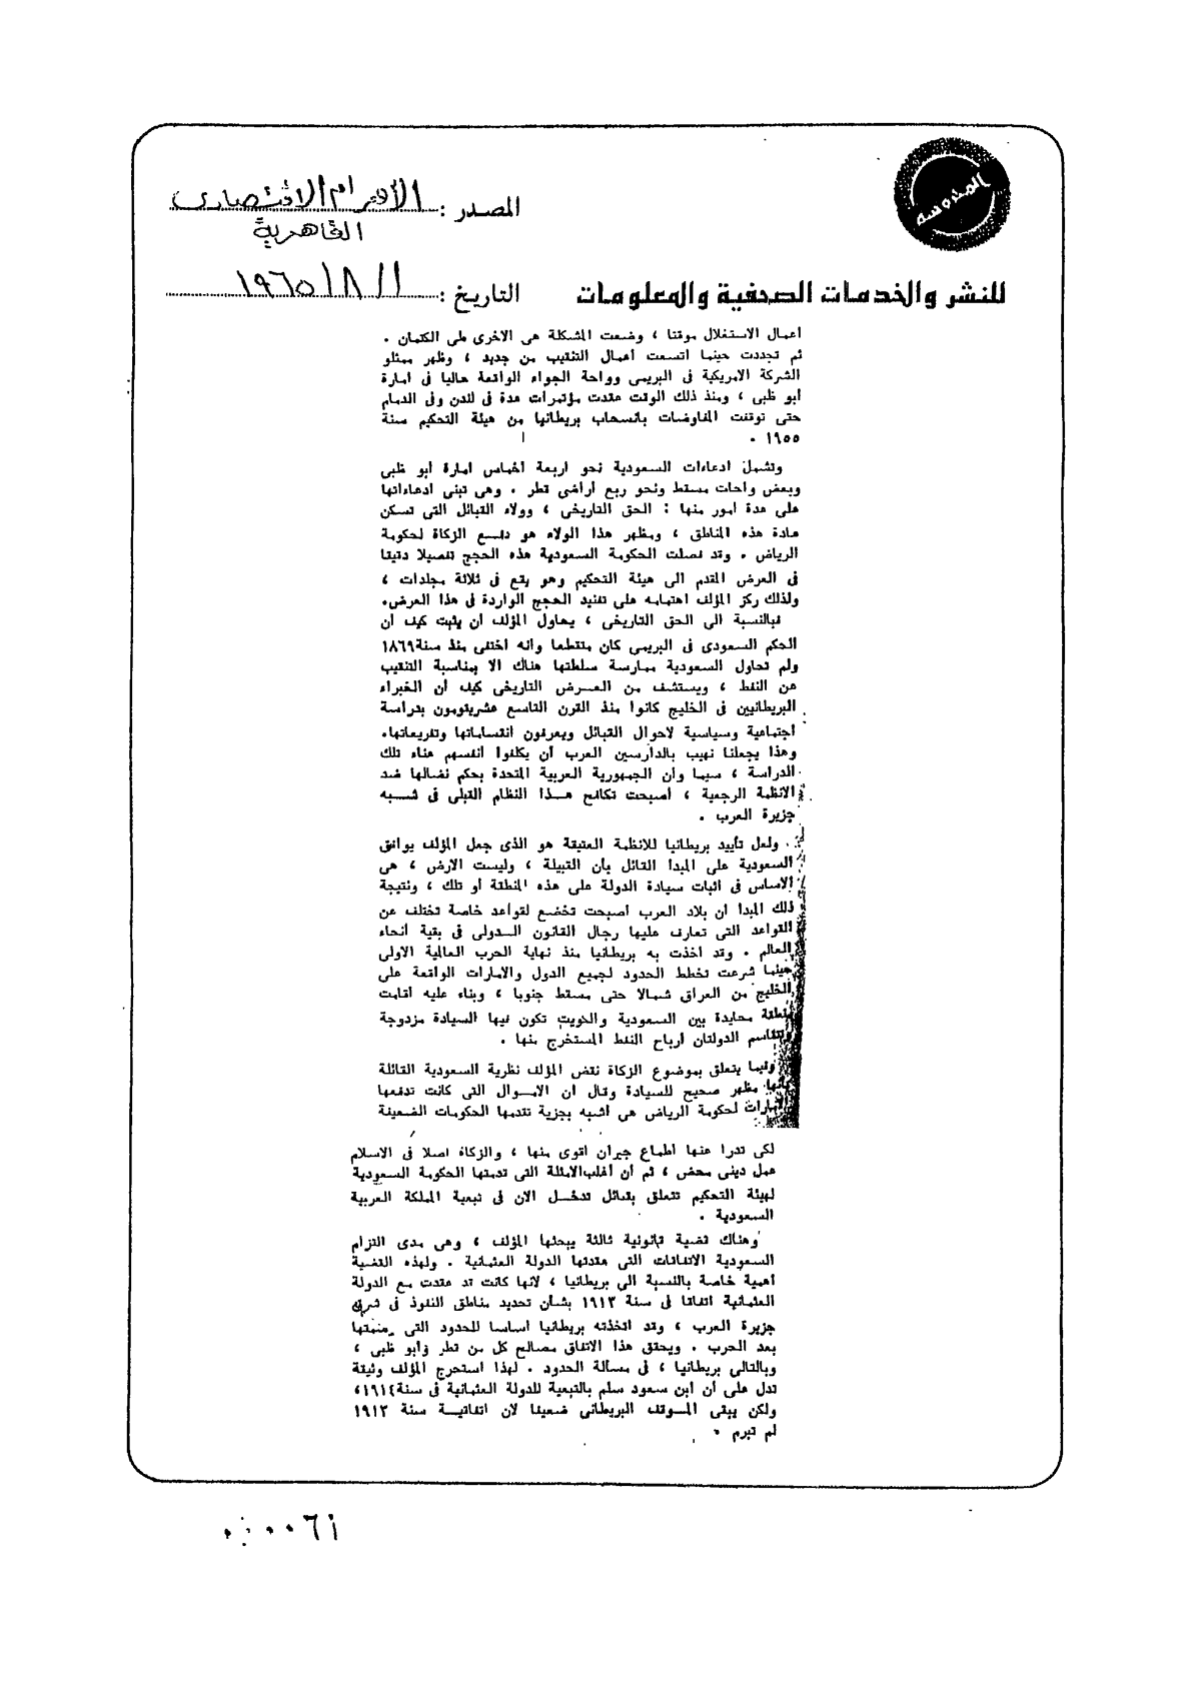 المحروسة
المصدر : الأهرام الاقتصادى
القاهرية
للنشر والخدمات الصحفية والمعلومات
التاريخ : ١ / ٨ / ١٩٦٥
اعمال الاستغلال موقتا ، وضعت المشكلة هى الاخرى طى الكتمان .
ثم تجددت حينما اتسعت اعمال التنقيب من جديد ، وظهر ممثلو
الشركة الامريكية فى البريمى وواحة الجواء الواقعة حاليا فى امارة
ابو ظبى ، ومنذ ذلك الوقت عقدت مؤتمرات عدة فى لندن وفى الدمام
حتى توقفت المفاوضات بانسحاب بريطانيا من هيئة التحكيم سنة
١٩٥٥ .
وتشمل ادعاءات السعودية نحو اربعة اخماس امارة أبو ظبى
وبعض واحات مسقط ونحو ربع أراضى قطر . وهى تبنى ادعاءاتها
على عدة امور منها : الحق التاريخى ، وولاء القبائل التى تسكن
عادة هذه المناطق ، ومظهر هذا الولاء هو دفع الزكاة لحكومة
الرياض . وقد فصلت الحكومة السعودية هذه الحجج تفصيلا دقيقا
فى العرض المقدم الى هيئة التحكيم وهو يقع فى ثلاثة مجلدات ،
ولذلك ركز المؤلف اهتمامه على تفنيد الحجج الواردة فى هذا العرض.
فبالنسبة الى الحق التاريخى ، يحاول المؤلف أن يثبت كيف أن
الحكم السعودى فى البريمى كان متقطعا وانه اختفى منذ سنة ١٨٦٩
ولم تحاول السعودية ممارسة سلطتها هناك الا بمناسبة التنقيب
عن النفط ، ويستشف من العرض التاريخى كيف أن الخبراء
البريطانيين فى الخليج كانوا منذ القرن التاسع عشر يقومون بدراسة
اجتماعية وسياسية لاحوال القبائل ويعرفون انقساماتها وتفريعاتها.
وهذا يجعلنا نهيب بالدارسين العرب أن يكلفوا أنفسهم عناء تلك
الدراسة ، سيما وأن الجمهورية العربية المتحدة بحكم نضالها ضد
الانظمة الرجعية ، أصبحت تكافح هذا النظام القبلى فى شبه
جزيرة العرب .
ولعل تأييد بريطانيا للانظمة العتيقة هو الذى جعل المؤلف يوافق
السعودية على المبدا القائل بأن القبيلة ، وليست الارض ، هى
الاساس فى اثبات سيادة الدولة على هذه المنطقة أو تلك ، ونتيجة
ذلك المبدا ان بلاد العرب اصبحت تخضع لقواعد خاصة تختلف عن
القواعد التى تعارف عليها رجال القانون الدولى فى بقية أنحاء
العالم . وقد اخذت به بريطانيا منذ نهاية الحرب العالمية الاولى
حينما شرعت تخطط الحدود لجميع الدول والامارات الواقعة على
الخليج من العراق شمالا حتى مسقط جنوبا ، وبناء عليه اقامت
منطقة محايدة بين السعودية والكويت تكون فيها السيادة مزدوجة
وتتقاسم الدولتان أرباح النفط المستخرج منها .
وفيما يتعلق بموضوع الزكاة نقض المؤلف نظرية السعودية القائلة
بأنها مظهر صحيح للسيادة وقال أن الاموال التى كانت تدفعها
الامارات لحكومة الرياض هى أشبه بجزية تقدمها الحكومات الضعيفة
لكى تدرا عنها أطماع جيران أقوى منها ، والزكاة اصلا فى الاسلام
عمل دينى محض ، ثم أن أغلب الامثلة التى قدمتها الحكومة السعودية
لهيئة التحكيم تتعلق بقبائل تدخل الان فى تبعية المملكة العربية
السعودية .
وهناك قضية قانونية ثالثة يبحثها المؤلف ، وهى مدى التزام
السعودية الاتفاقات التى عقدتها الدولة العثمانية . ولهذه القضية
أهمية خاصة بالنسبة الى بريطانيا ، لانها كانت قد عقدت مع الدولة
العثمانية اتفاقا فى سنة ١٩١٣ بشأن تحديد مناطق النفوذ فى شرق
جزيرة العرب ، وقد اتخذته بريطانيا أساسا للحدود التى رسمتها
بعد الحرب . ويحقق هذا الاتفاق مصالح كل من قطر وأبو ظبى ،
وبالتالى بريطانيا ، فى مسألة الحدود . لهذا استخرج المؤلف وثيقة
تدل على أن ابن سعود سلم بالتبعية للدولة العثمانية فى سنة ١٩١٤،
ولكن يبقى الموقف البريطانى ضعيفا لان اتفاقية سنة ١٩١٣
لم تبرم .